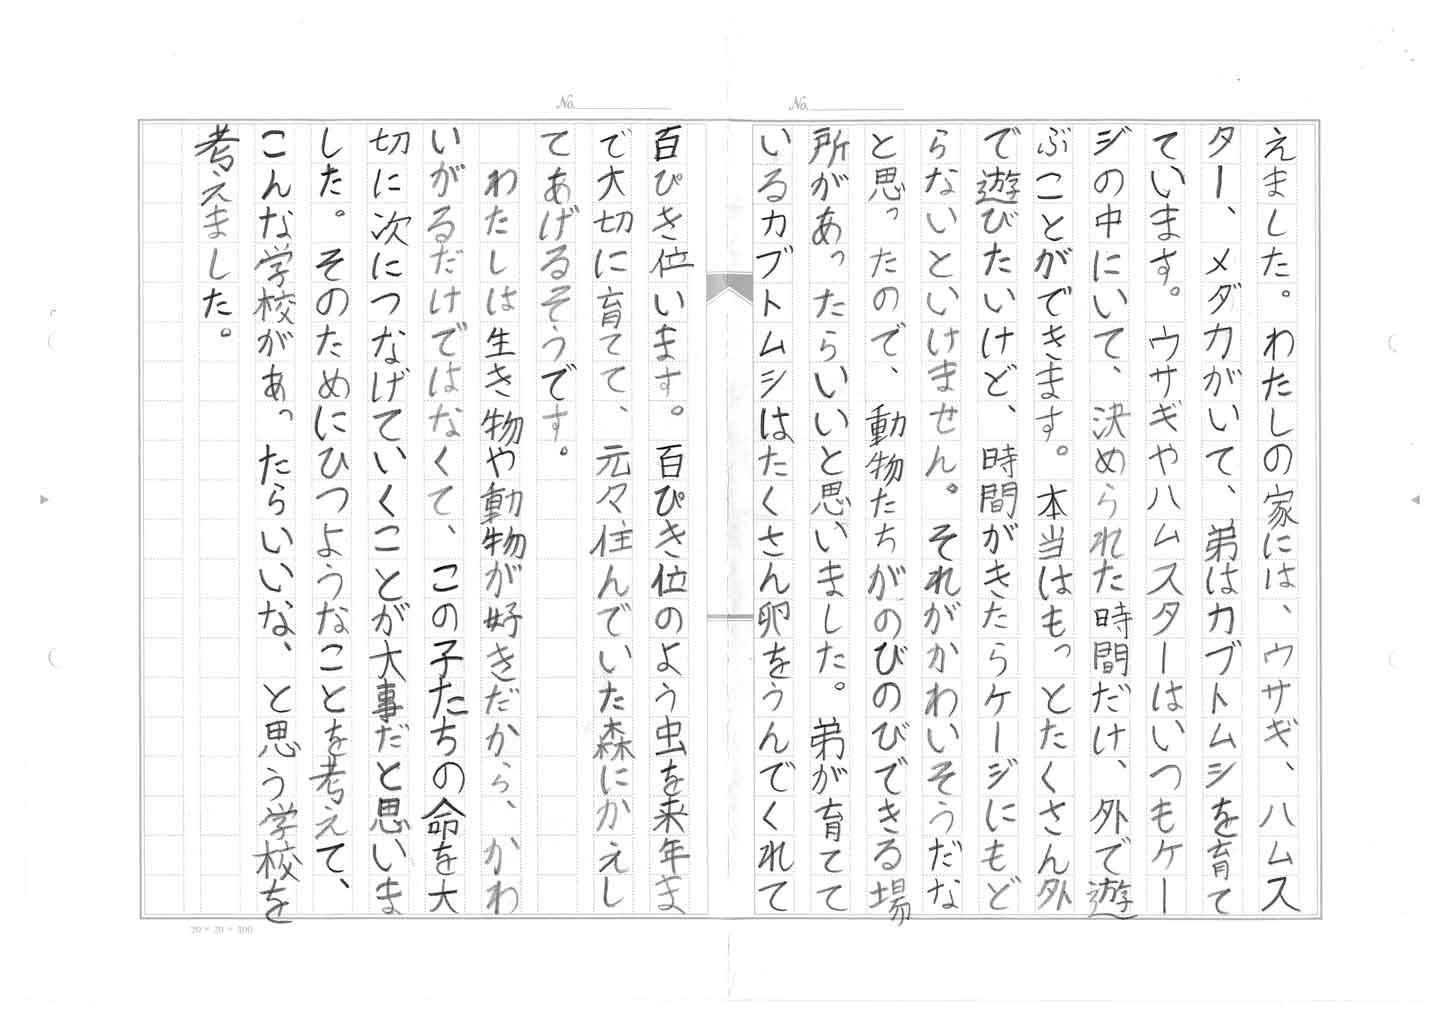 えました。わたしの家には、ウサギ、ハムス
ター、メダカがいて、弟はカブトムシを育て
ています。ウサギやハムスターはいつもケー
ジの中にいて、決められた時間だけ、外で遊
ぶことができます。本当はもっとたくさん外
で遊びたいけど、時間がきたらケージにもど
らないといけません。それがかわいそうだな
と思ったので、動物たちがのびのびできる場
所があったらいいと思いました。弟が育てて
いるカブトムシはたくさん卵をうんでくれて
百ぴき位います。百ぴき位のよう虫を来年ま
で大切に育てて、元々住んでいた森にかえし
てあげるそうです。
わたしは生き物や動物が好きだから、かわ
いがるだけではなくて、この子たちの命を大
切に次につなげていくことが大事だと思いま
した。そのためにひつようなことを考えて、
こんな学校があったらいいな、と思う学校を
考えました。
No.
No.
20×20=400